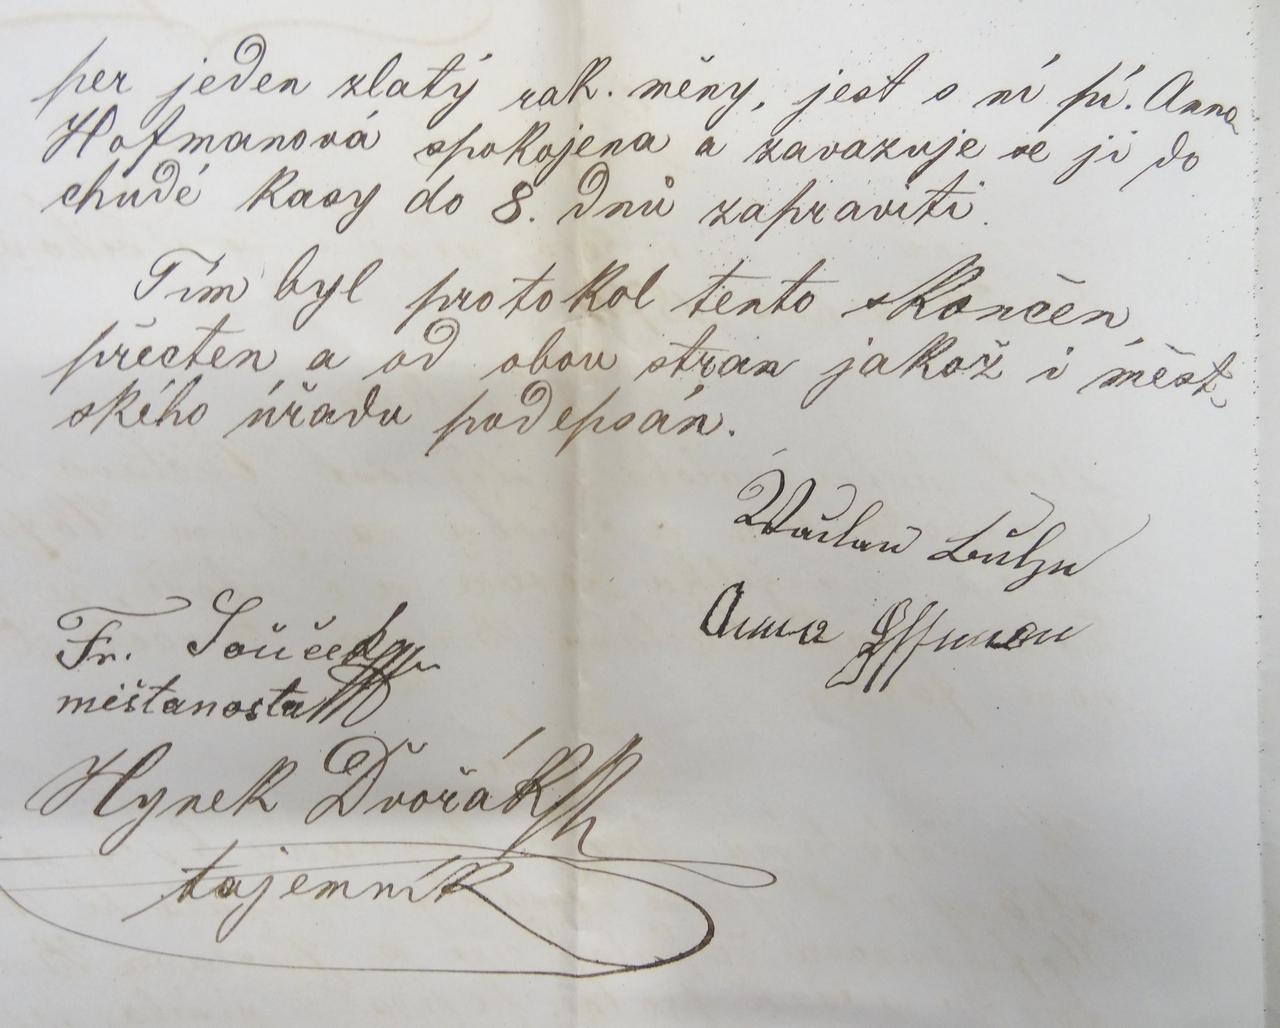 per jeden zlatý rak. měny, jest s ní pí. Anna
Hofmanová spokojena a zavazuje se ji do
chudé kasy do 8. dnů zapraviti.
Tím byl protokol tento skončen,
přečten a od obou stran jakož i měst-
ského úřadu podepsán.
Václav
Anna Hffman
Fr. Souček
měštanosta
Hynek Dvořák
tajemník